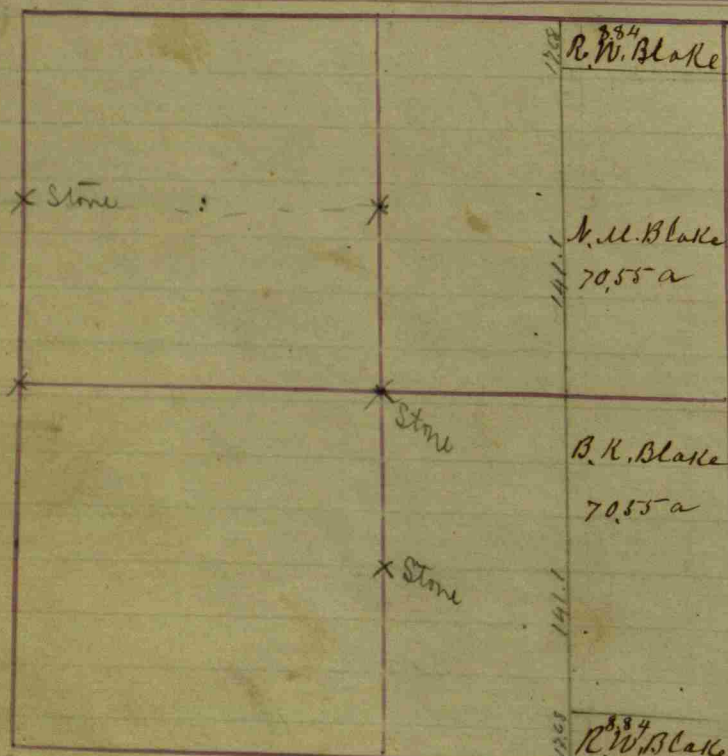 17.68
8.84
R. W. Blake
Stone
141.1
N. M. Blake
70.55 a
Stone
B. K. Blake
70.55 a
Stone
141.1
17.68
8.84
R. W. Blak